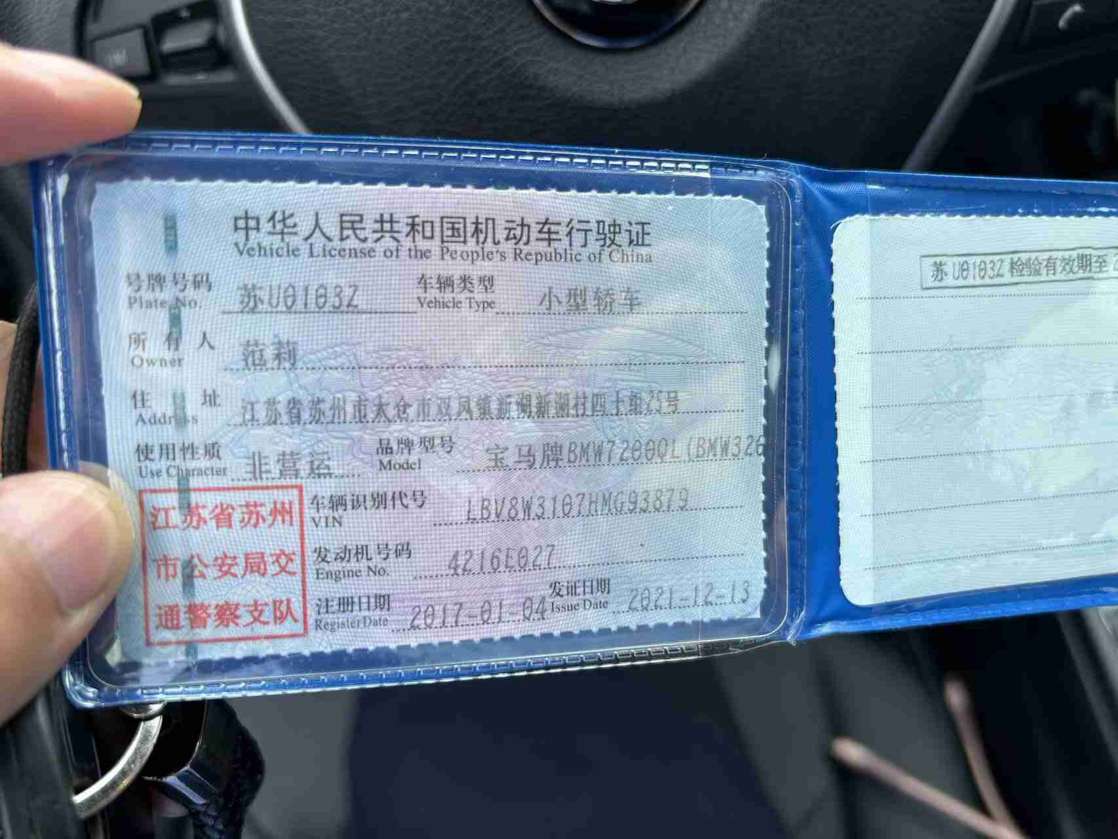 中华人民共和国机动车行驶证
Vehicle License of the People's Republic of China
号牌号码 苏U0103Z 车辆类型 小型轿车
Plate No. Vehicle Type
所有人 范莉
Owner
住址 江苏省苏州市太仓市双凤镇新湖新湖村四十组25号
Address
使用性质 非营运 品牌型号 宝马牌BMW7200QL(BMW320
Use Character Model
江苏省苏州
市公安局交
通警察支队
车辆识别代号 LBV8W3107HMG93879
VIN
发动机号码 4216E027
Engine No.
注册日期 2017-01-04 发证日期 2021-12-13
Register Date Issue Date
苏U0103Z 检验有效期至